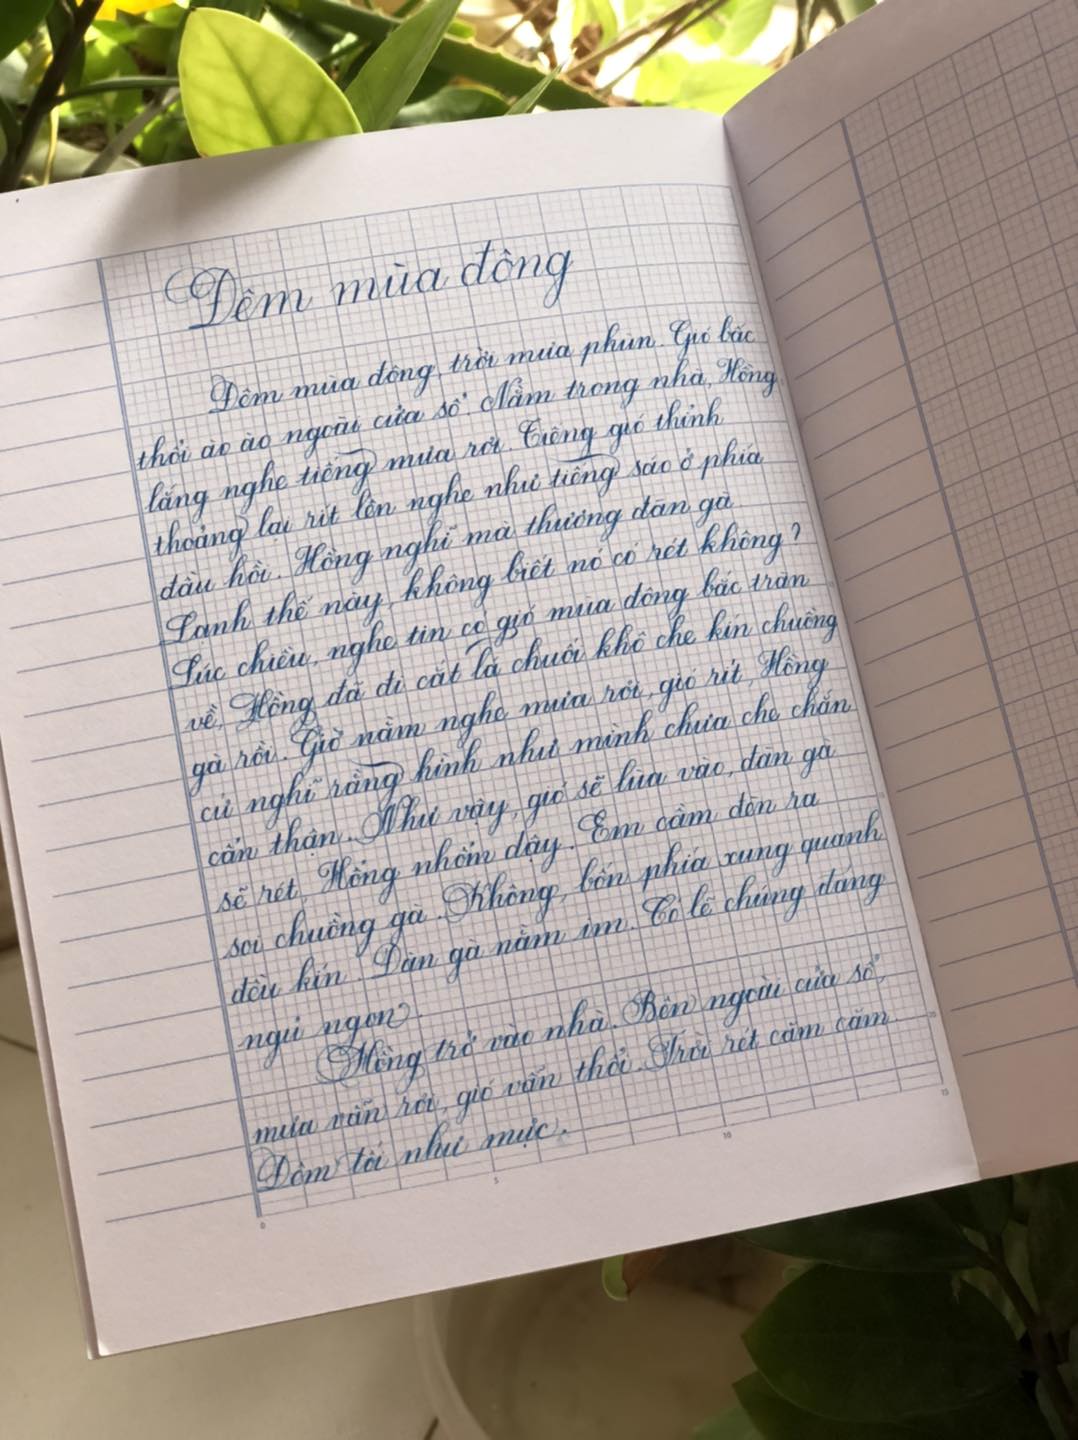 Đêm mùa đông
Đêm mùa đông, trời mưa phùn. Gió bấc
thổi ào ào ngoài cửa sổ. Nằm trong nhà, Hồng
lắng nghe tiếng mưa rơi. Tiếng gió thỉnh
thoảng lại rít lên nghe như tiếng sáo ở phía
đầu hồi. Hồng nghĩ mà thương đàn gà
Lạnh thế này, không biết nó có rét không?
Lúc chiều, nghe tin có gió mùa đông bắc tràn
về, Hồng đã đi cắt lá chuối khô che kín chuồng
gà rồi. Giờ nằm nghe mưa rơi, gió rít, Hồng
cứ nghĩ rằng hình như mình chưa che chắn
cẩn thận. Như vậy, gió sẽ lùa vào, đàn gà
sẽ rét, Hồng nhổm dậy. Em cầm đèn ra
soi chuồng gà. Không, bốn phía xung quanh
đều kín. Đàn gà nằm im. Có lẽ chúng đang
ngủ ngon.
Hồng trở vào nhà. Bên ngoài cửa sổ,
mưa vẫn rơi, gió vẫn thổi. Trời rét căm căm.
Đêm tối như mực.
0
5
10
15